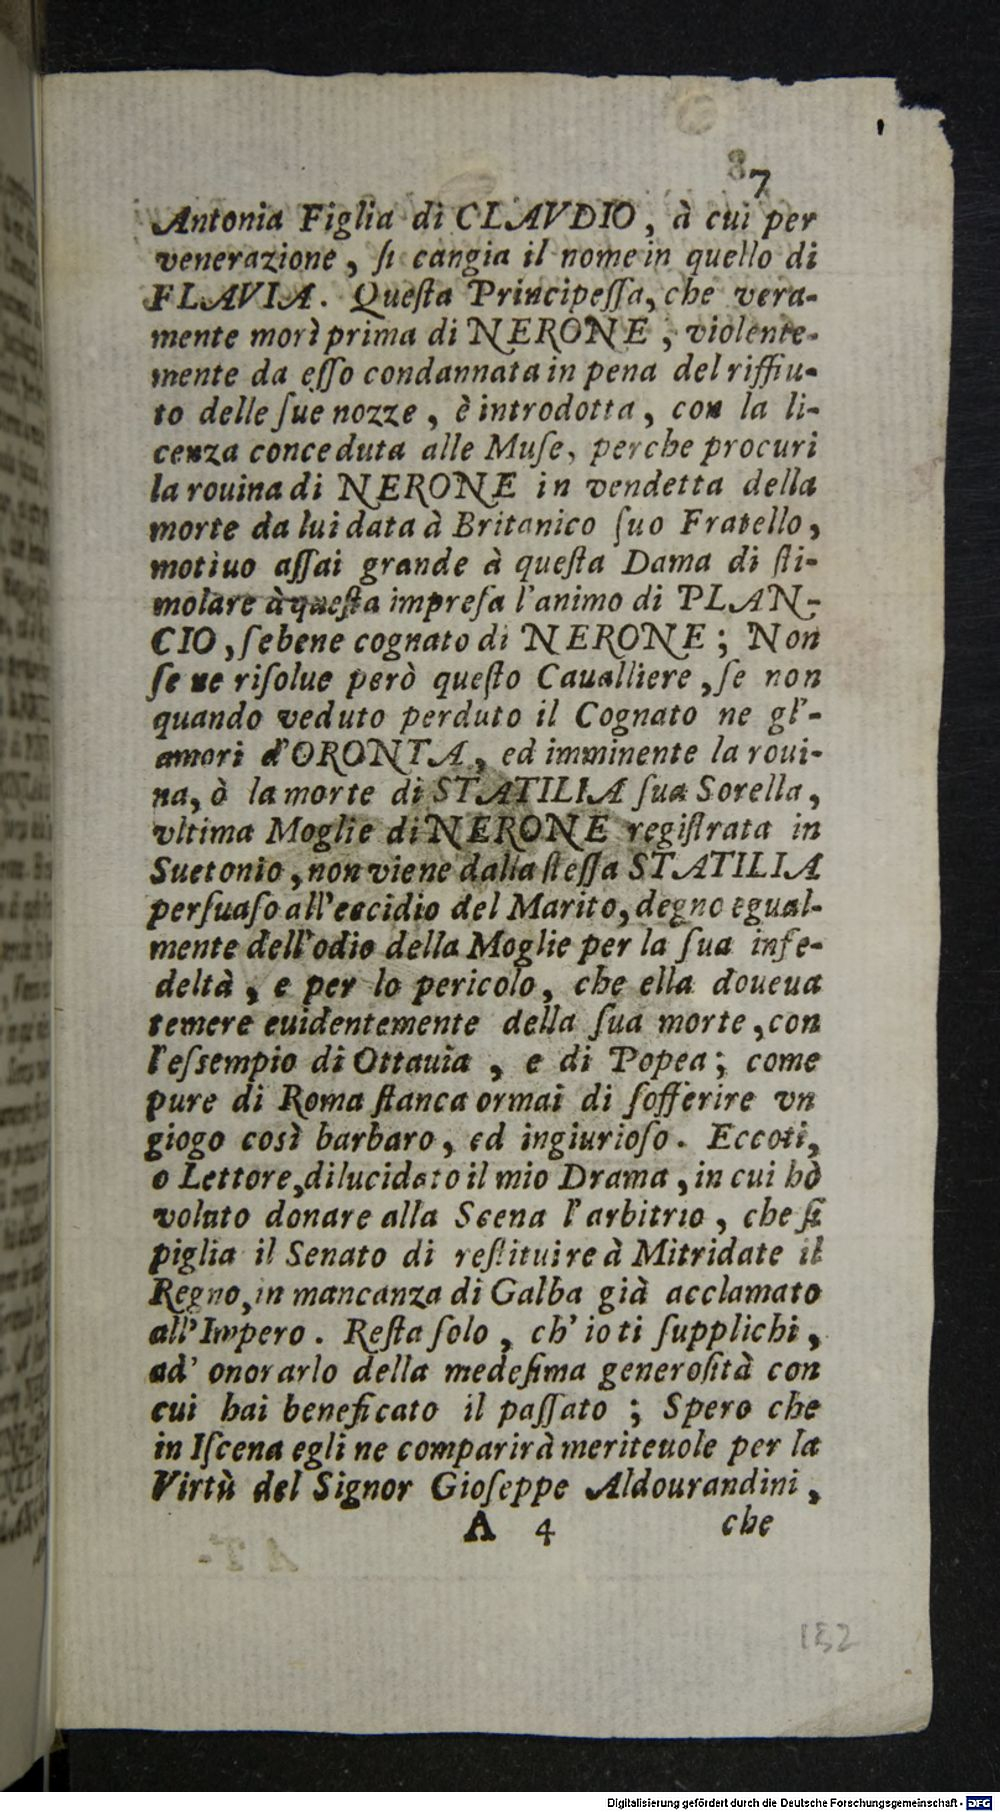 7
Antonia Figlia di CLAVDIO, à cui per
venerazione, ſi cangia il nome in quello di
FLAVIA. Queſta Principeſſa, che vera-
mente morì prima di NERONE, violente-
mente da eſſo condannata in pena del riffiu-
to delle ſue nozze, è introdotta, con la li-
cenza conceduta alle Muſe, perche procuri
la rouina di NERONE in vendetta della
morte da lui data à Britanico ſuo Fratello,
motiuo aſſai grande à queſta Dama di ſti-
molare à queſta impreſa l'animo di PLAN-
CIO, ſebene cognato di NERONE; Non
ſe ne riſolue però queſto Caualliere, ſe non
quando veduto perduto il Cognato ne gl'-
amori d'ORONTA, ed imminente la roui-
na, ò la morte di STATILIA ſua Sorella,
vltima Moglie di NERONE regiſtrata in
Suetonio, non viene dalla ſteſſa STATILIA
perſuaſo all'eccidio del Marito, degno egual-
mente dell'odio della Moglie per la ſua infe-
deltà, e per lo pericolo, che ella doueua
temere euidentemente della ſua morte, con
l'eſsempio di Ottauia, e di Popea; come
pure di Roma ſtanca ormai di ſofferire vn
giogo così barbaro, ed ingiurioſo. Eccoti,
o Lettore, dilucidato il mio Drama, in cui hò
voluto donare alla Scena l'arbitrio, che ſi
piglia il Senato di reſtituire à Mitridate il
Regno, in mancanza di Galba già acclamato
all'Impero. Reſta ſolo, ch'io ti ſupplichi,
ad' onorarlo della medeſima generoſità con
cui hai beneficato il paſſato; Spero che
in Iſcena egli ne comparirà meriteuole per la
Virtù del Signor Gioſeppe Aldourandini,
A 4 che
152
Digitalisierung gefördert durch die Deutsche Forschungsgemeinschaft - DFG